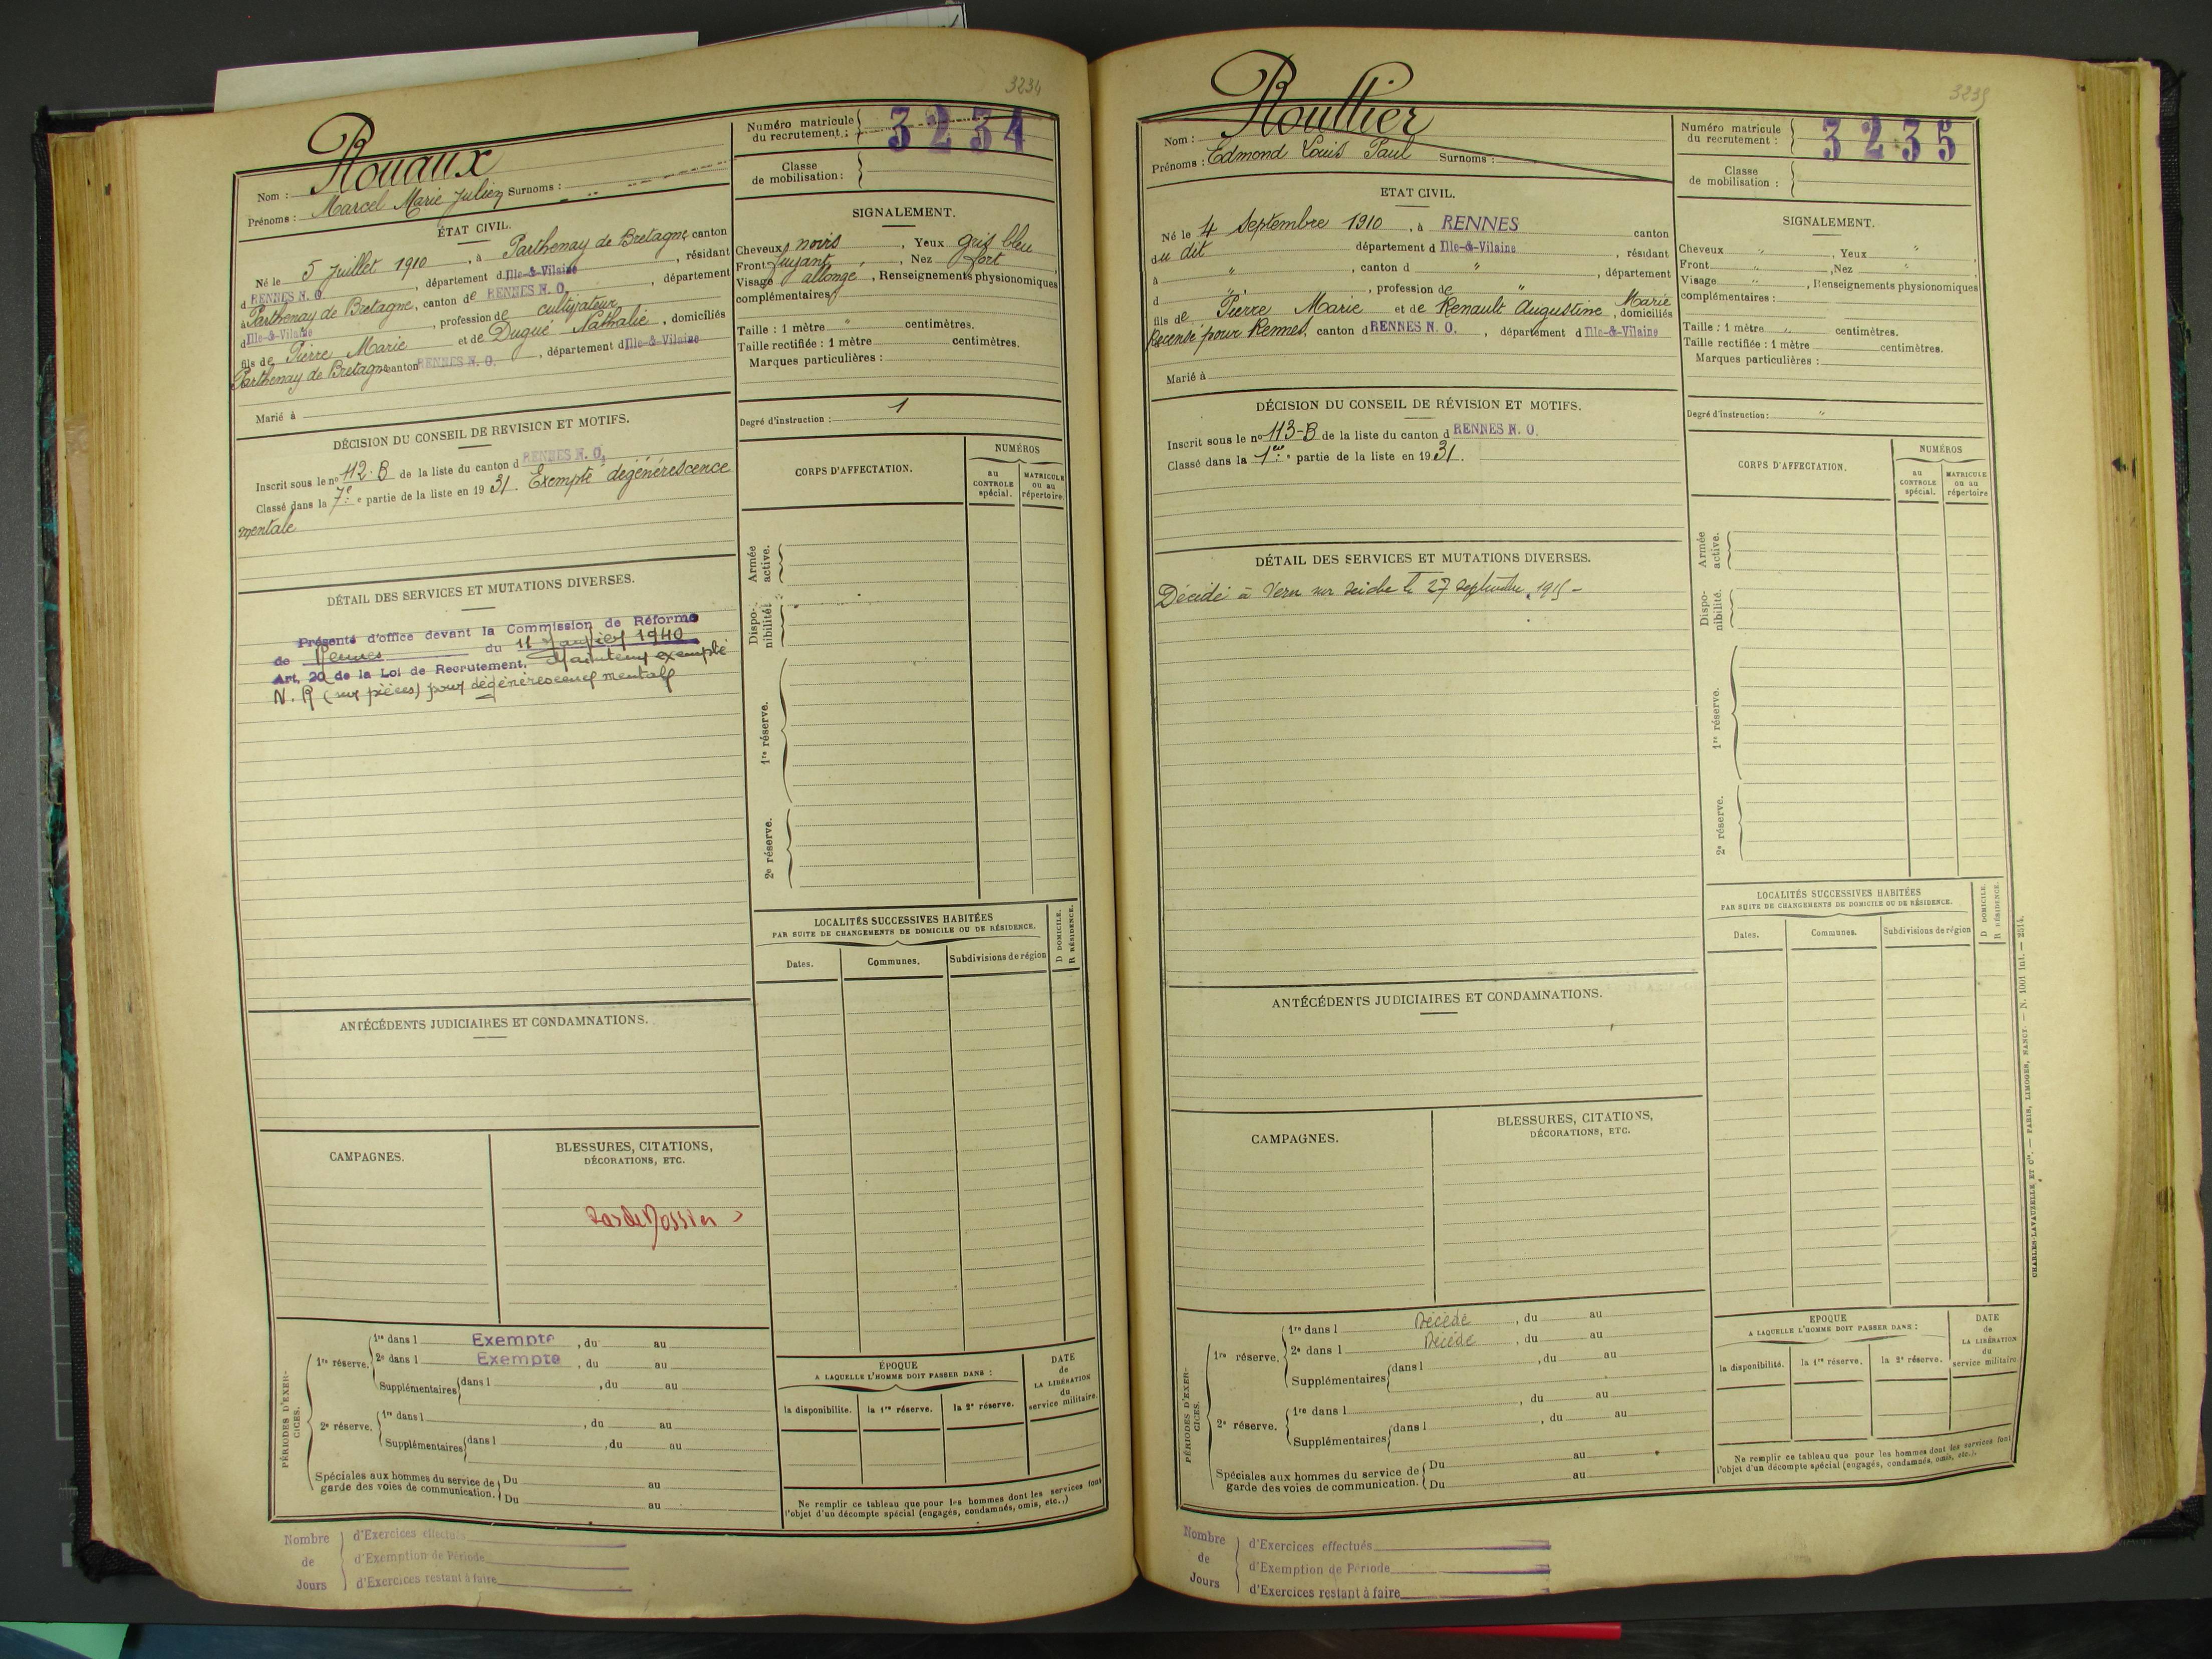 3234
Rouaux
Nom :
Prénoms : Marcel Marie Julien Surnoms :
Numéro matricule du recrutement : 3234
Classe de mobilisation :
ÉTAT CIVIL.
Né le 5 Juillet 1910, à Parthenay de Bretagne canton
d RENNES N. O., département d Ille-&-Vilaine, résidant
à Parthenay de Bretagne, canton de RENNES N. O., département
d Ille-&-Vilaine, profession de cultivateur
fils de Pierre Marie et de Dugué Nathalie, domiciliés
Parthenay de Bretagne canton RENNES N. O., département d Ille-&-Vilaine
Marié à
SIGNALEMENT.
Cheveux noirs, Yeux gris bleu
Front fuyant, Nez fort
Visage allongé, Renseignements physionomiques
complémentaires
Taille : 1 mètre " centimètres.
Taille rectifiée : 1 mètre centimètres.
Marques particulières :
Degré d'instruction : 1
DÉCISION DU CONSEIL DE REVISION ET MOTIFS.
Inscrit sous le no 112-B de la liste du canton d RENNES N. O.
Classé dans la 7e partie de la liste en 1931. Exempté dégénérescence
mentale
DÉTAIL DES SERVICES ET MUTATIONS DIVERSES.
Présenté d'office devant la Commission de Réforme
de Rennes du 11 Janvier 1940
Art. 20 de la Loi de Recrutement, Maintenu exempté
N. R (sur pièces) pour dégénérescence mentale
CORPS D'AFFECTATION.
NUMÉROS
au CONTROLE spécial.
MATRICULE ou au répertoire.
Armée active.
Disponibilité.
1re réserve.
2e réserve.
LOCALITÉS SUCCESSIVES HABITÉES
PAR SUITE DE CHANGEMENTS DE DOMICILE OU DE RÉSIDENCE.
D DOMICILE.
R RÉSIDENCE.
Dates.
Communes.
Subdivisions de région
ANTÉCÉDENTS JUDICIAIRES ET CONDAMNATIONS.
CAMPAGNES.
BLESSURES, CITATIONS,
DÉCORATIONS, ETC.
Pas de Dossier
PÉRIODES D'EXERCICES.
1re réserve.
1re dans l Exempté, du au
2e dans l Exempté, du au
Supplémentaires dans l , du au
2e réserve.
1re dans l , du au
Supplémentaires dans l , du au
Spéciales aux hommes du service de garde des voies de communication.
Du au
Du au
ÉPOQUE
A LAQUELLE L'HOMME DOIT PASSER DANS :
la disponibilité.
la 1re réserve.
la 2e réserve.
DATE de LA LIBÉRATION du service militaire.
Ne remplir ce tableau que pour les hommes dont les services font
l'objet d'un décompte spécial (engagés, condamnés, omis, etc.,)
Nombre de Jours
d'Exercices effectués
d'Exemption de Période
d'Exercices restant à faire
3235
Roullier
Nom :
Prénoms : Edmond Louis Paul Surnoms :
Numéro matricule du recrutement : 3235
Classe de mobilisation :
ETAT CIVIL.
Né le 4 Septembre 1910, à RENNES canton
du dit département d Ille-&-Vilaine, résidant
à ", canton d ", département
d ", profession de "
fils de Pierre Marie et de Renault Augustine Marie, domiciliés
Recensé pour Rennes, canton d RENNES N. O., département d Ille-&-Vilaine
Marié à
SIGNALEMENT.
Cheveux ", Yeux "
Front ", Nez "
Visage ", Renseignements physionomiques
complémentaires :
Taille : 1 mètre " centimètres.
Taille rectifiée : 1 mètre centimètres.
Marques particulières :
Degré d'instruction : "
DÉCISION DU CONSEIL DE RÉVISION ET MOTIFS.
Inscrit sous le no 113-B de la liste du canton d RENNES N. O.
Classé dans la 1ère partie de la liste en 1931.
DÉTAIL DES SERVICES ET MUTATIONS DIVERSES.
Décédé à Vern sur Seiche le 27 Septembre 1915 -
CORPS D'AFFECTATION.
NUMÉROS
au CONTROLE spécial.
MATRICULE ou au répertoire
Armée active.
Disponibilité.
1re réserve.
2e réserve.
LOCALITÉS SUCCESSIVES HABITÉES
PAR SUITE DE CHANGEMENTS DE DOMICILE OU DE RÉSIDENCE.
D DOMICILE.
R RÉSIDENCE.
Dates.
Communes.
Subdivisions de région
ANTÉCÉDENTS JUDICIAIRES ET CONDAMNATIONS.
CAMPAGNES.
BLESSURES, CITATIONS,
DÉCORATIONS, ETC.
PÉRIODES D'EXERCICES.
1re réserve.
1re dans l Décédé, du au
2e dans l Décédé, du au
Supplémentaires dans l , du au
, du au
2e réserve.
1re dans l
Supplémentaires dans l , du au
Spéciales aux hommes du service de garde des voies de communication.
Du au
Du au
EPOQUE
A LAQUELLE L'HOMME DOIT PASSER DANS :
la disponibilité.
la 1re réserve.
la 2e réserve.
DATE de LA LIBÉRATION du service militaire
Ne remplir ce tableau que pour les hommes dont les services font
l'objet d'un décompte spécial (engagés, condamnés, omis, etc.).
CHARLES-LAVAUZELLE ET Cie. — PARIS, LIMOGES, NANCY. — N. 1001 int. — 2514.
Nombre de Jours
d'Exercices effectués
d'Exemption de Période
d'Exercices restant à faire